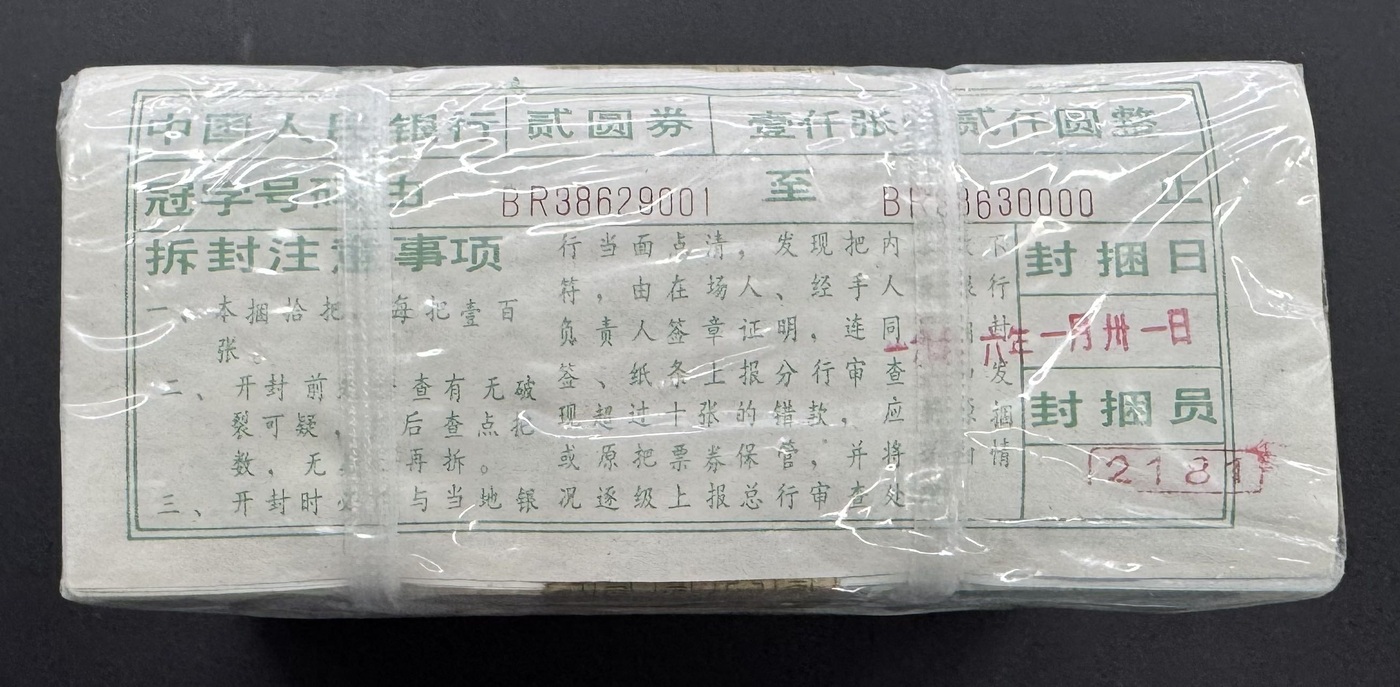 中国人民银行 贰圆券 壹仟张 贰仟圆整
冠字号码 由 BR38629001 至 BR38630000 止
拆封注意事项
一、本捆拾把 每把壹百
张。
二、开封前 查有无破
裂可疑， 后查点把
数，无 再拆。
三、开封时 与当地银
行当面点清，发现把内 不
符，由在场人、经手人 银行
负责人签章证明，连同 封
签、纸条上报分行审查 发
现超过十张的错款，应 捆
或原把票券保管，并将 情
况逐级上报总行审查处
封捆日
六年一月卅一日
封捆员
2181